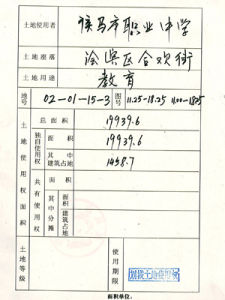 土地使用者 侯马市职业中学
土地座落 浍滨区合欢街
土地用途 教育
地号 02-01-15-3 图号 11.25-18.25 11.00-18.25
土地使用权面积
总面积 19939.6
独自使用权 面积 19939.6
其中建筑占地 1458.7
共有使用权 面积
其中分摊 面积
建筑占地
土地等级
使用期限
划拨土地使用权
面积单位: